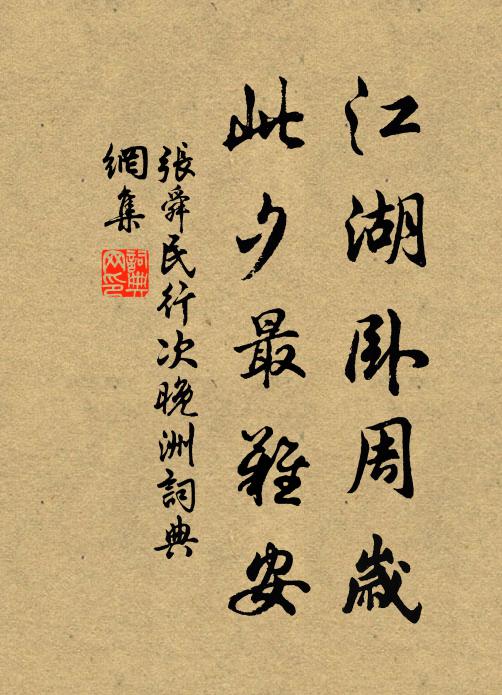 江湖卧周歲
此夕最難安
張舜民行次晚洲詞典
網集
詞典
网印